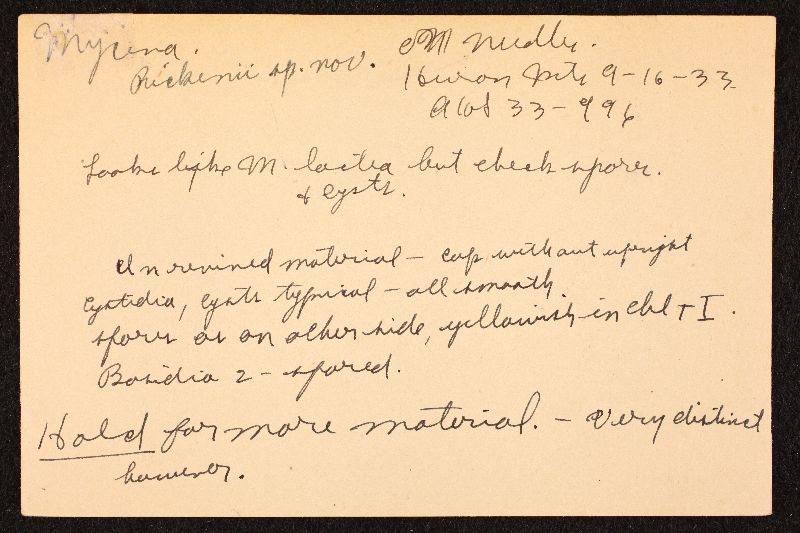 Mycena.
Rickenii sp. nov.
on needles.
Huron Mts 9-16-33
AHS 33-996
Looks like M. lactea but check spores.
+ cysts.
In revived material - cap without upright
cystidia, cysts typical - all smooth.
spores as on other side, yellowish in chl + I.
Basidia 2-spored.
Hold for more material. - Very distinct
however.